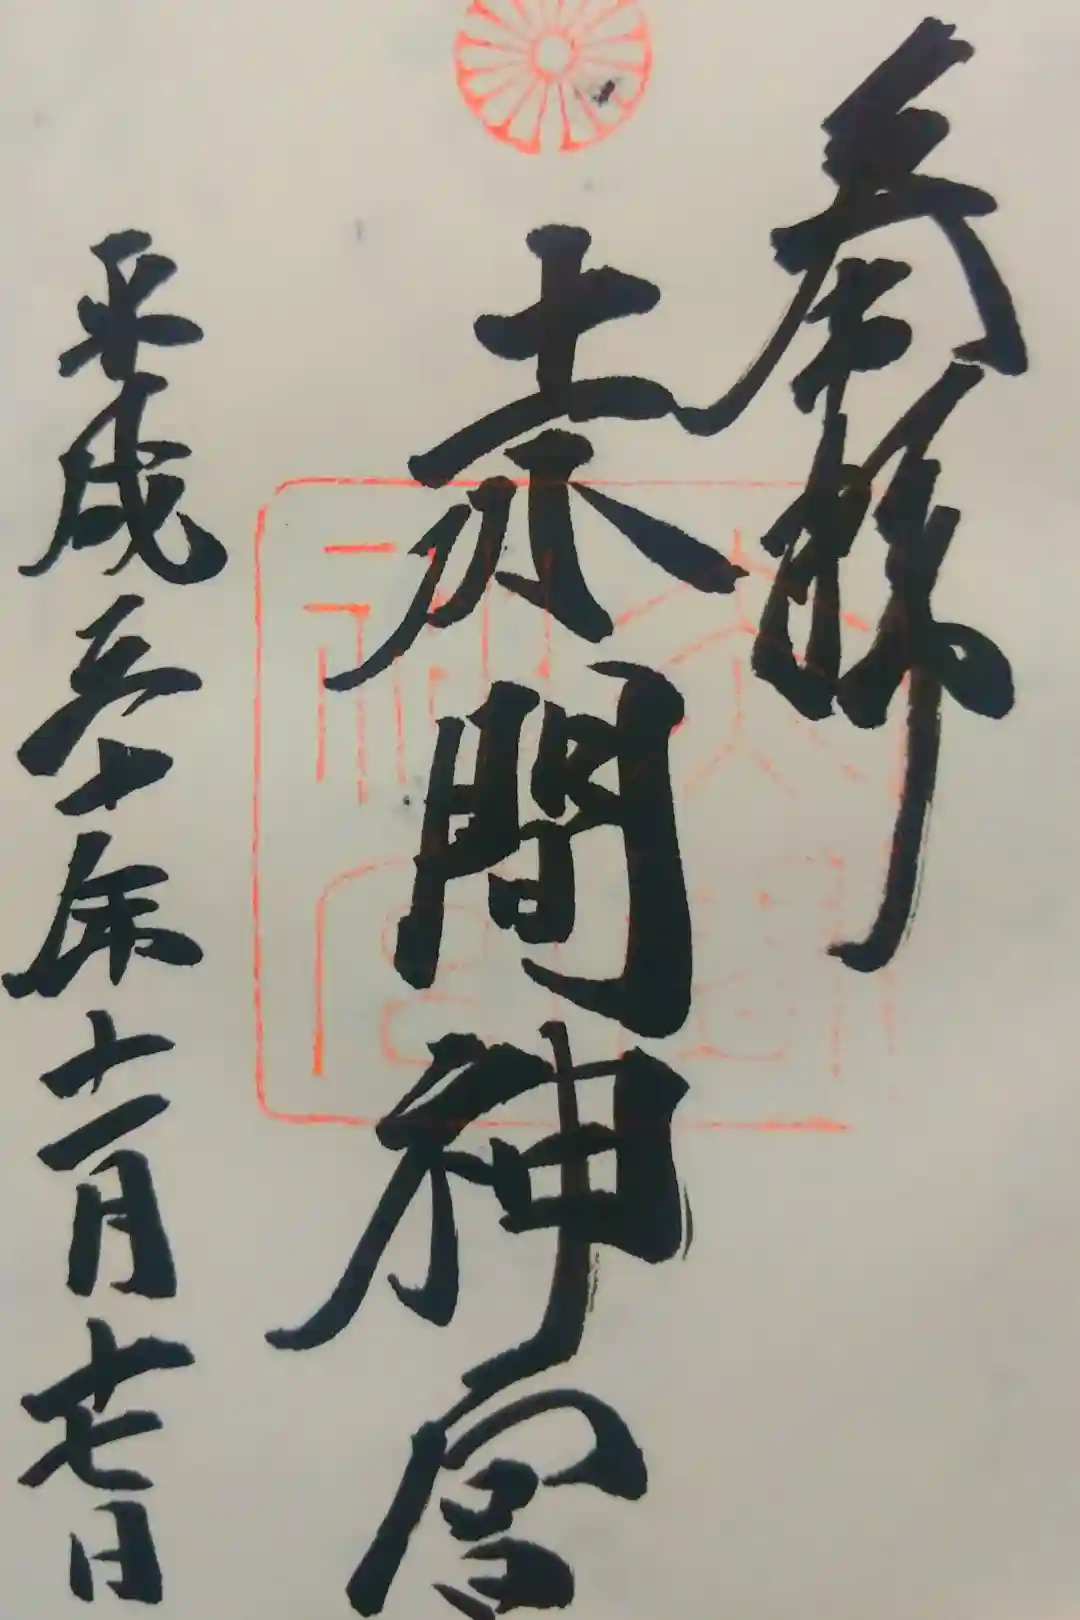 奉拝
赤間神宮
平成三十年十一月十七日
赤間
神宮